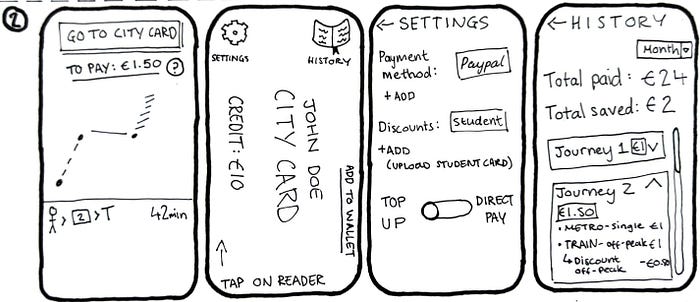 2
GO TO CITY CARD
TO PAY: €1.50 ?
2 > T 42min
SETTINGS
HISTORY
JOHN DOE
CITY CARD
CREDIT: €10
ADD TO WALLET
TAP ON READER
← SETTINGS
Payment
method: Paypal
+ ADD
Discounts: Student
+ADD
(UPLOAD STUDENT CARD)
TOP
UP
DIRECT
PAY
← HISTORY
Month
Total paid: €24
Total saved: €2
Journey 1 €1
Journey 2
€1.50
• METRO-single €1
• TRAIN-off-peak €1
↳ Discount
off-peak -€0.50